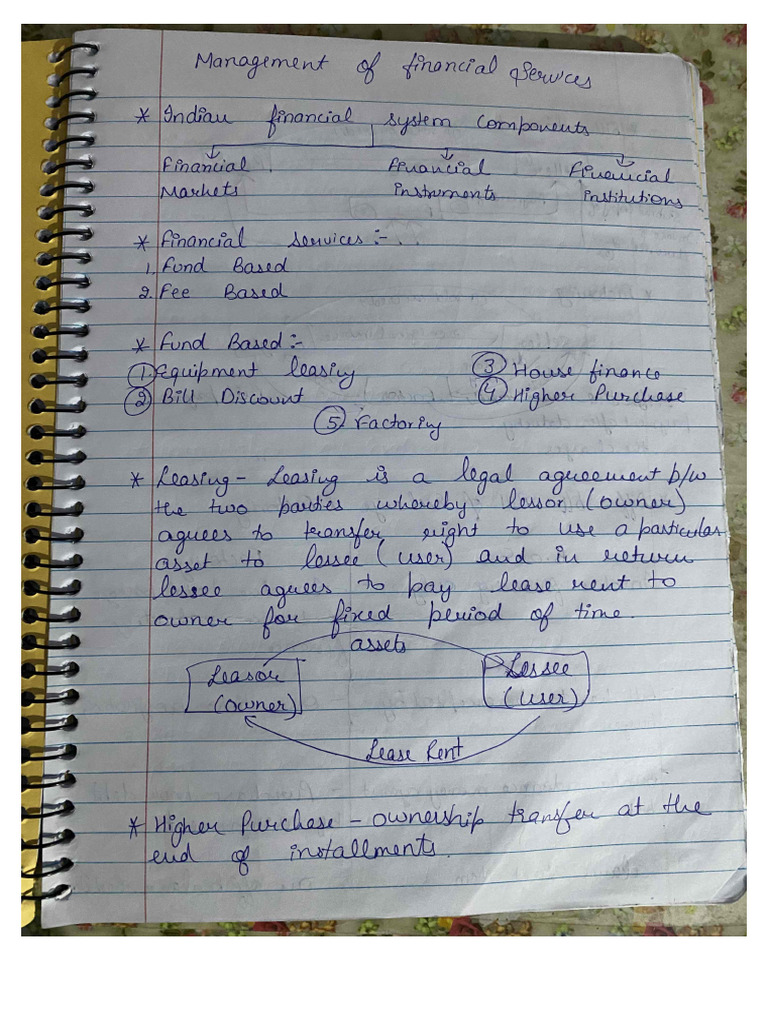 Management of financial services
* Indian financial system components
Financial Financial Financial
Markets instruments institutions
* Financial services :-
1. Fund Based
2. Fee Based
* Fund Based :-
1. Equipment leasing 3 House finance
2 Bill Discount 4 Higher Purchase
5 Factoring
* Leasing - Leasing is a legal agreement b/w
the two parties whereby lessor (owner)
agrees to transfer right to use a particular
asset to lessee (user) and in return
lessee agrees to pay lease rent to
owner for fixed period of time.
assets
Leasor Lessee
(owner) (user)
Lease Rent
* Higher Purchase - ownership transfer at the
end of installments.